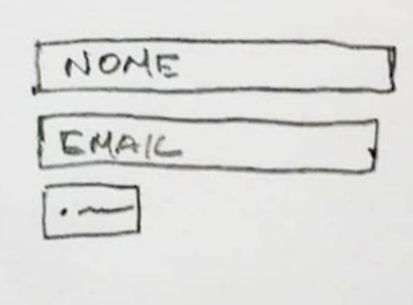 NOME
EMAIL